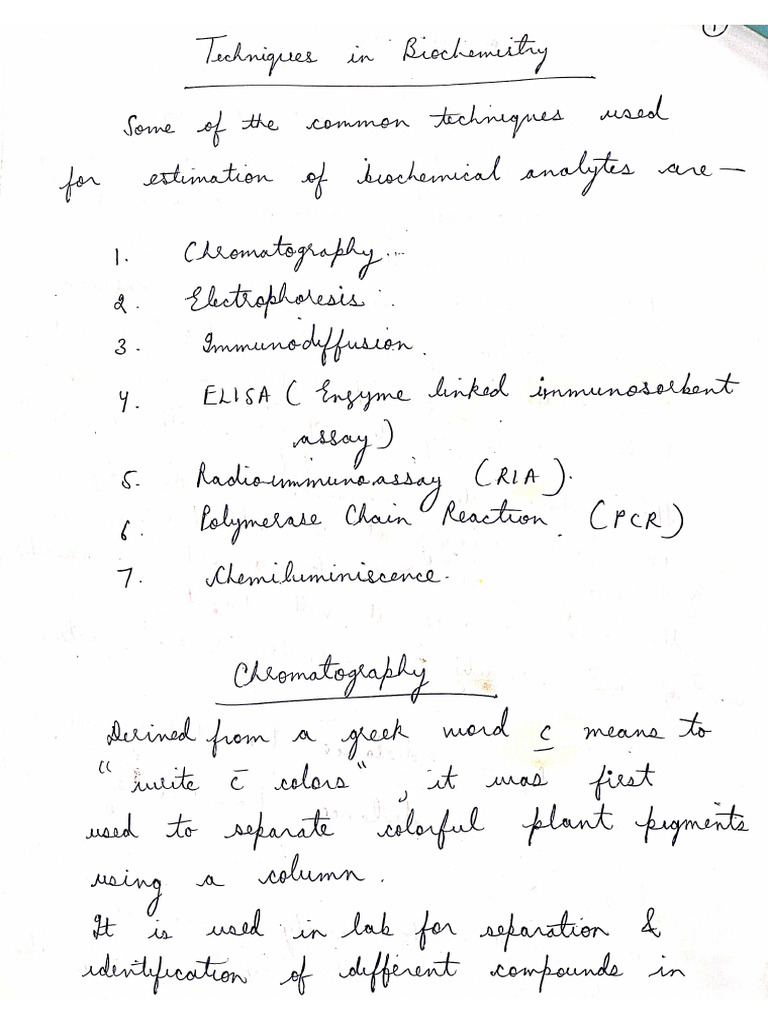 1
Techniques in Biochemistry
Some of the common techniques used
for estimation of biochemical analytes are —
1. Chromatography...
2. Electrophoresis.
3. Immunodiffusion.
4. ELISA ( Enzyme linked immunosorbent
assay)
5. Radioimmunoassay (RIA).
6. Polymerase Chain Reaction. (PCR)
7. Chemiluminiscence.
Chromatography
Derived from a greek word c̲ means to
"write c̄ colors", it was first
used to separate colorful plant pigments
using a column.
It is used in lab for separation &
identification of different compounds in